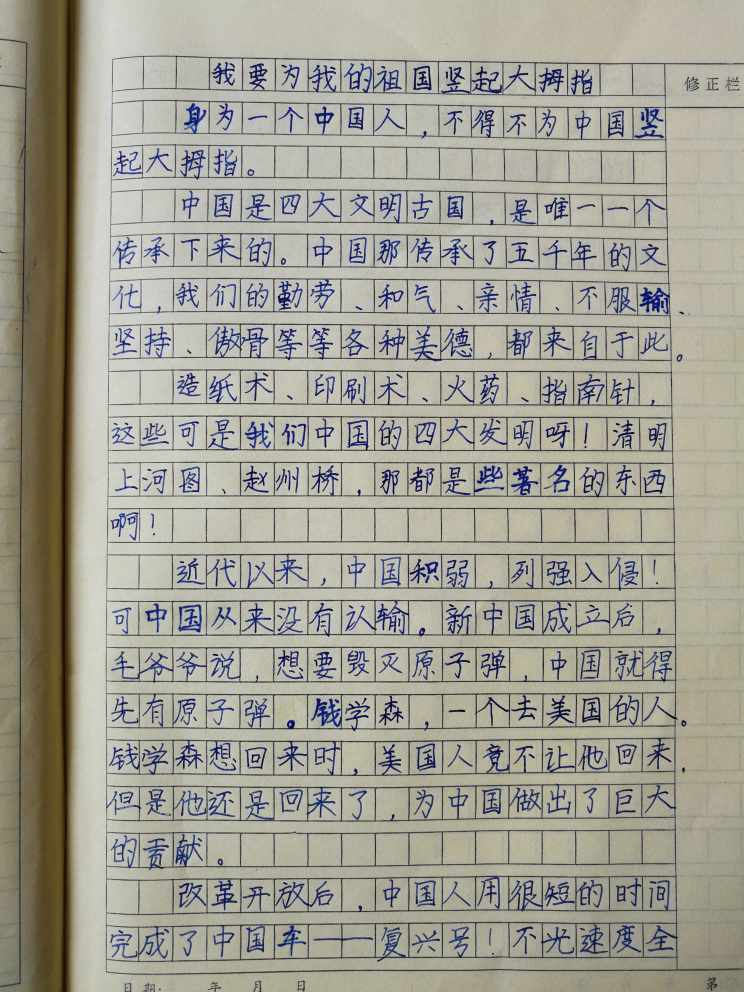 我要为我的祖国竖起大拇指
修正栏
身为一个中国人，不得不为中国竖
起大拇指。
中国是四大文明古国，是唯一一个
传承下来的。中国那传承了五千年的文
化，我们的勤劳、和气、亲情、不服输、
坚持、傲骨等等各种美德，都来自于此。
造纸术、印刷术、火药、指南针，
这些可是我们中国的四大发明呀！清明
上河图、赵州桥，那都是些著名的东西
啊！
近代以来，中国积弱，列强入侵！
可中国从来没有认输。新中国成立后，
毛爷爷说，想要毁灭原子弹，中国就得
先有原子弹。钱学森，一个去美国的人。
钱学森想回来时，美国人竟不让他回来，
但是他还是回来了，为中国做出了巨大
的贡献。
改革开放后，中国人用很短的时间
完成了中国车——复兴号！不光速度全
日期： 年 月 日
第